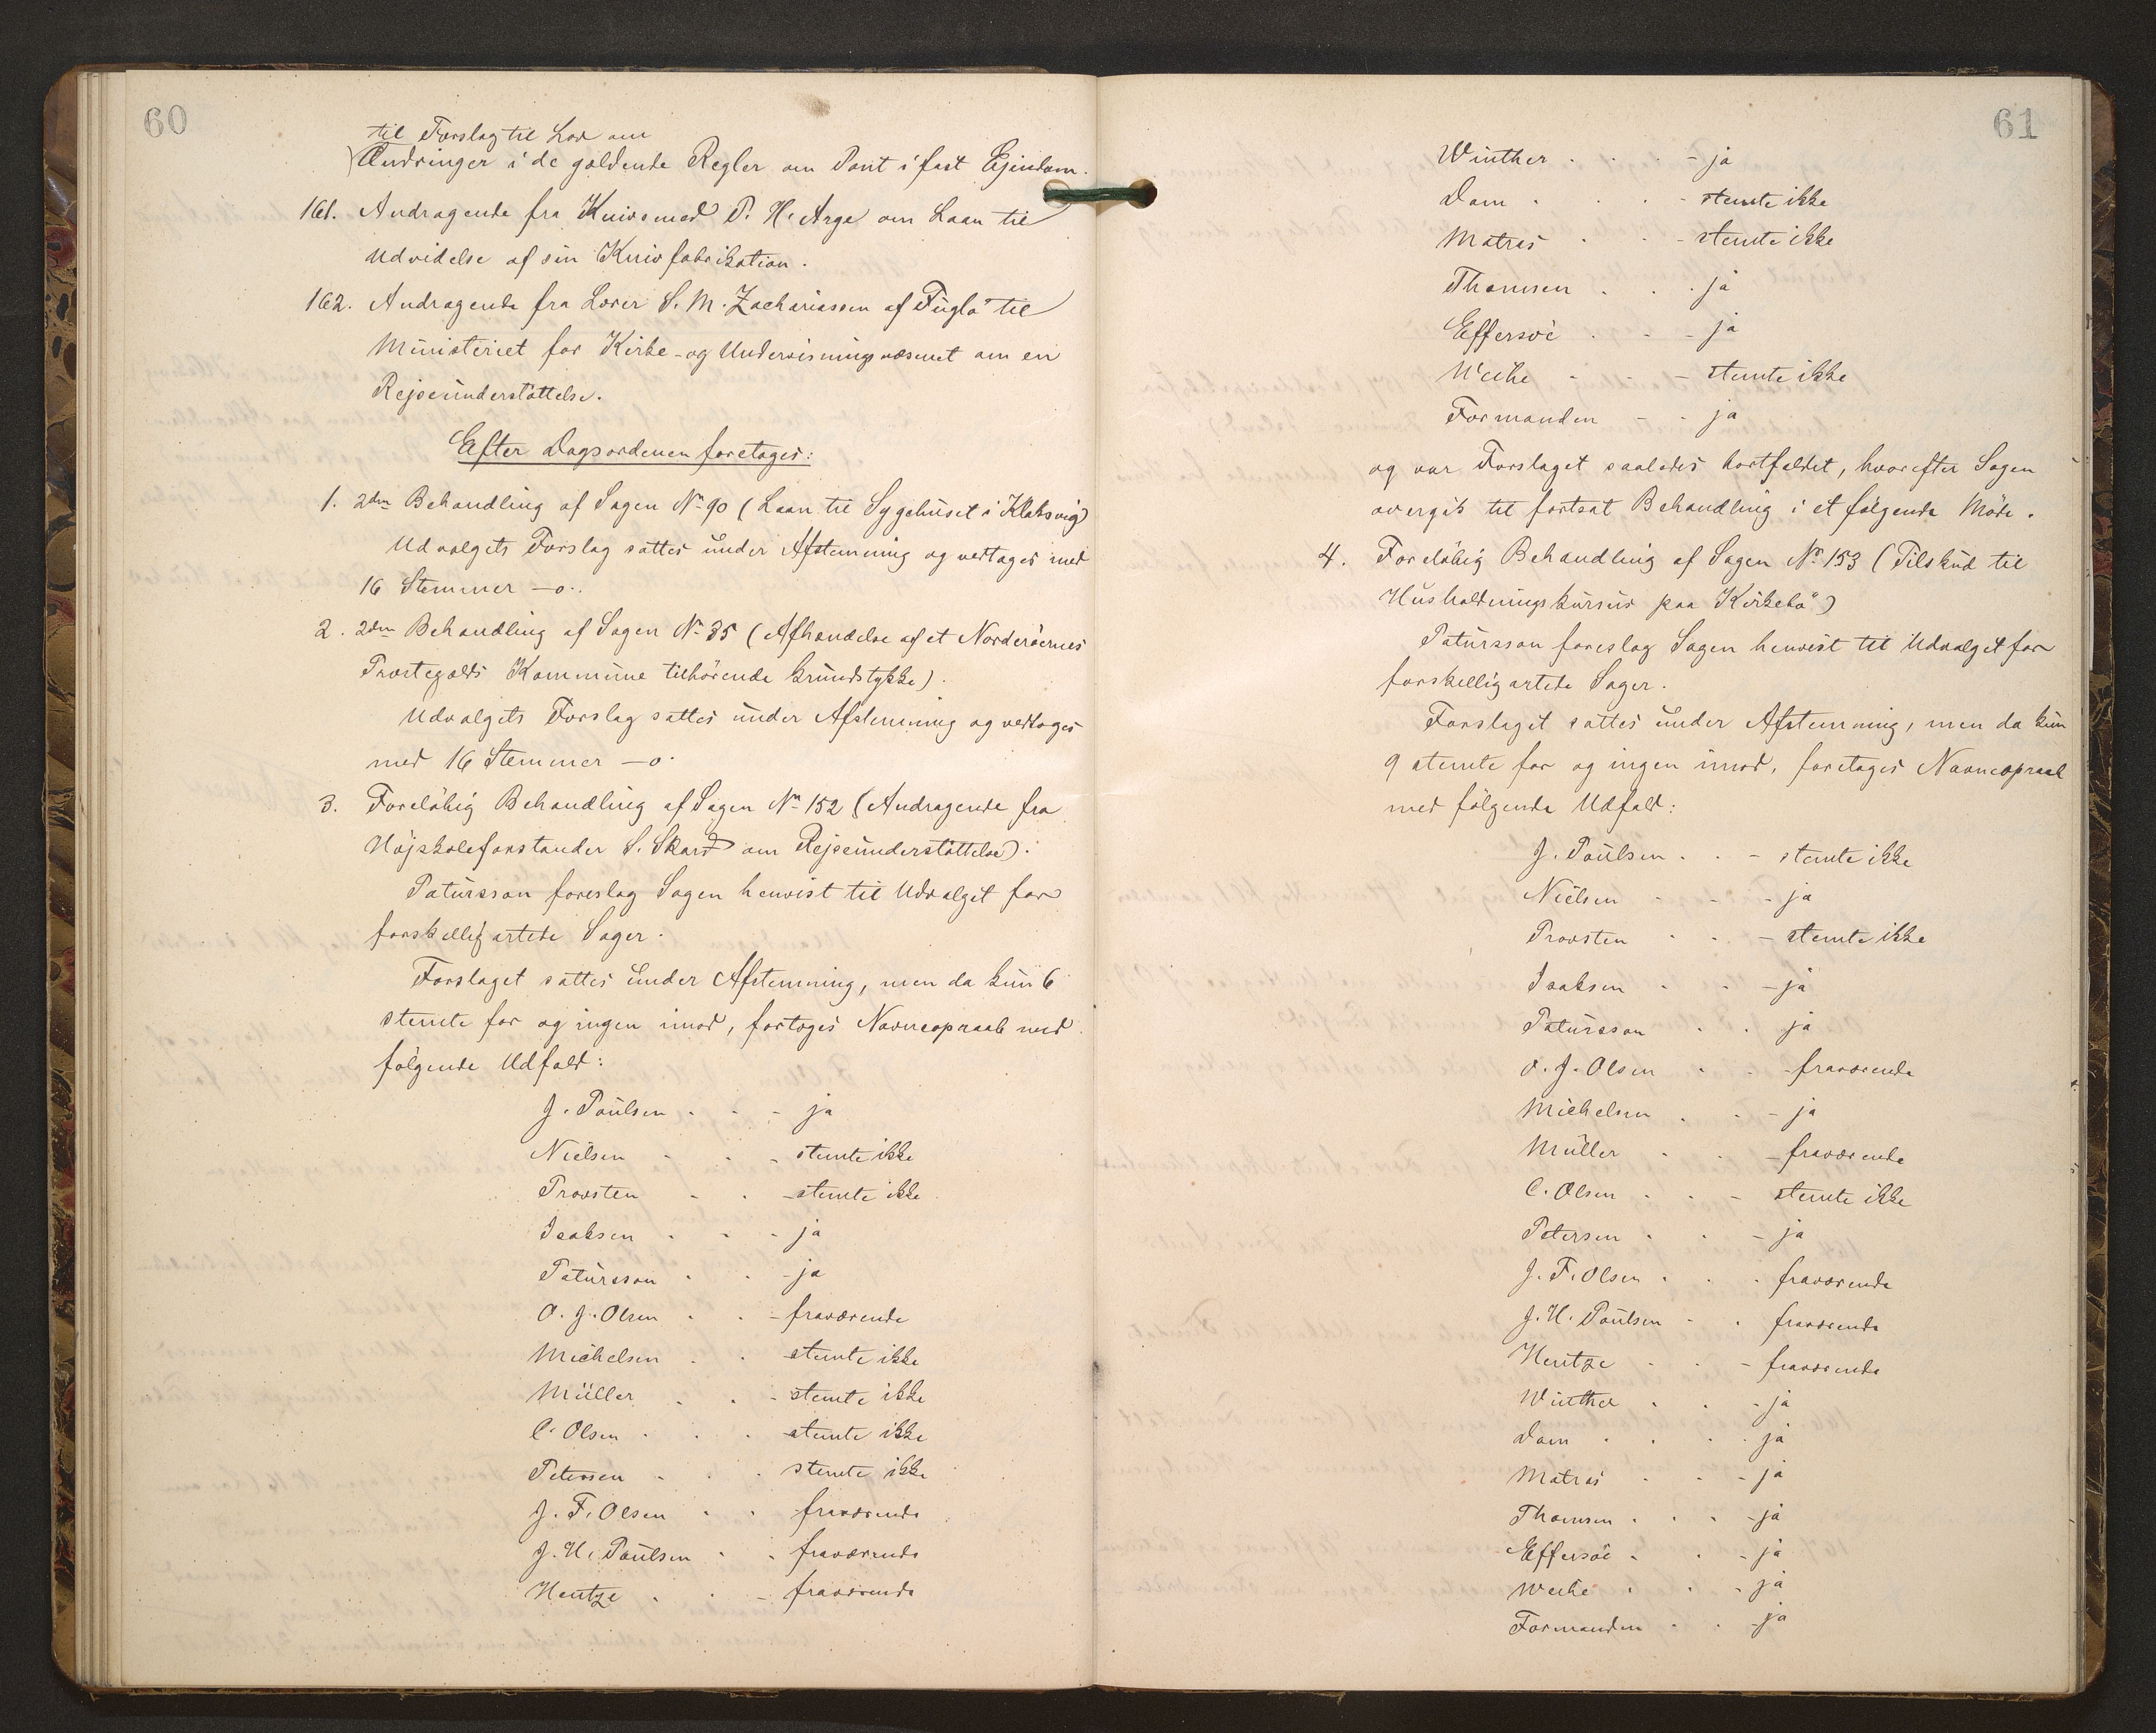 60
til Forslag til Lov om
Ændringer i de gældende Regler om Pant i fast Ejendom.
161. Andragende fra Knivsmed P. H. Arge om Laan til
Udvidelse af sin Knivfabrikation.
162. Andragende fra Lærer S. M. Zachariassen af Fuglö til
Ministeriet for Kirke- og Undervisningsvæsenet om en
Rejseunderstöttelse.
Efter Dagsordenen foretoges:
1. 2den Behandling af Sagen No 90 (Laan til Sygehuset i Klaksvig)
Udvalgets Forslag sattes under Afstemning og vedtoges med
16 Stemmer - 0.
2. 2den Behandling af Sagen No 35 (Afhændelse af et Norderöernes
Præstegælds Kommune tilhörende Grundstykke).
Udvalgets Forslag sattes under Afstemning og vedtoges
med 16 Stemmer - 0.
3. Forelöbig Behandling af Sagen No 152 (Andragende fra
Höjskoleforstander S. Skard om Rejseunderstöttelse).
Patursson foreslog Sagen henvist til Udvalget for
forskelligartede Sager.
Forslaget sattes under Afstemning, men da kun 6
stemte for og ingen imod, fortoges Navneopraab med
fölgende Udfald:
J. Poulsen - ja
Nielsen - stemte ikke
Provsten - stemte ikke
Isaksen - ja
Patursson - ja
O. J. Olsen - fraværende
Michelsen - stemte ikke
Müller - stemte ikke
C. Olsen - stemte ikke
Petersen - stemte ikke
J. F. Olsen - fraværende
J. H. Poulsen - fraværende
Hentze - fraværende
61
Winther - ja
Dam - stemte ikke
Matras - stemte ikke
Thomsen - ja
Effersöe - ja
Weihe - stemte ikke
Formanden - ja
og var Forslaget saaledes bortfaldet, hvorefter Sagen
overgik til fortsat Behandling i et fölgende Möde.
4. Forelöbig Behandling af Sagen No 153 (Tilskud til
Husholdningskursus paa Kirkebö)
Patursson foreslog Sagen henvist til Udvalget for
forskelligartede Sager.
Forslaget sattes under Afstemning, men da kun
9 stemte for og ingen imod, foretoges Navneopraab
med fölgende Udfald:
J. Poulsen - stemte ikke
Nielsen - ja
Provsten - stemte ikke
Isaksen - ja
Patursson - ja
O. J. Olsen - fraværende
Michelsen - ja
Müller - fraværende
C. Olsen - stemte ikke
Petersen - ja
J. F. Olsen - fraværende
J. H. Poulsen - fraværende
Hentze - fraværende
Winther - ja
Dam - ja
Matras - ja
Thomsen - ja
Effersöe - ja
Weihe - ja
Formanden - ja